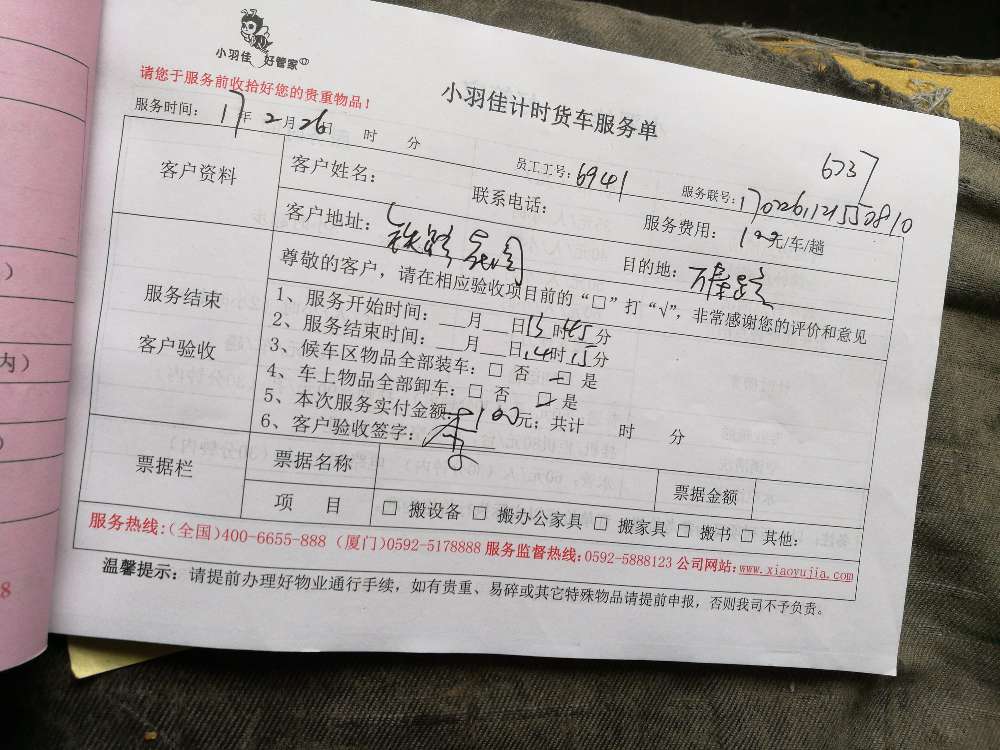 小羽佳 好管家
请您于服务前收拾好您的贵重物品！
小羽佳计时货车服务单
6737
服务时间： 17年 2月 26日 时 分
员工工号：6941 服务联号：
客户资料
客户姓名： 联系电话： 服务费用： 100元/车/趟
客户地址：铁路 目的地：
服务结束
客户验收
尊敬的客户，请在相应验收项目前的“□”打“√”，非常感谢您的评价和意见
1、服务开始时间：__月__日13时45分
2、服务结束时间：__月__日14时15分
3、候车区物品全部装车：□ 否 □ 是
4、车上物品全部卸车：□ 否 □ 是
5、本次服务实付金额：100元；共计 时 分
6、客户验收签字：李
票据栏
票据名称 票据金额
项 目 □ 搬设备 □ 搬办公家具 □ 搬家具 □ 搬书 □ 其他：
服务热线：（全国）400-6655-888（厦门）0592-5178888 服务监督热线：0592-5888123 公司网站：www.xiaoyujia.com
温馨提示：请提前办理好物业通行手续，如有贵重、易碎或其它特殊物品请提前申报，否则我司不予负责。
内）
8